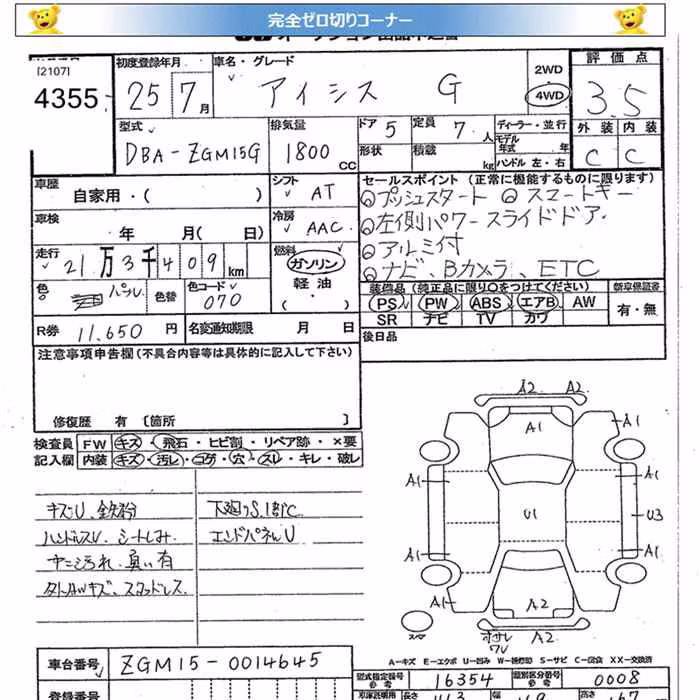 完全ゼロ切りコーナー
[2107]
4355
初度登録年月
25 7月
車名・グレード
アイシス G
2WD
4WD
評価点
3.5
外装 内装
C C
型式
DBA-ZGM15G
排気量
1800 CC
ドア 5
形状
定員 7 人
積載 kg
ディーラー・並行
モデル年式 年
ハンドル 左・右
車歴
自家用・( )
シフト
AT
車検
年 月( 日)
冷房
AAC
走行
21万3千409km
燃料
ガソリン
軽油
色
パール
色替
色コード
070
R券 11,650 円
名変通知期限 月 日
セールスポイント (正常に機能するものに限ります)
プッシュスタート スマートキー
左側パワースライドドア
アルミ付
ナビ、Bカメラ、ETC
装備品(純正品に限り○をつけてください)
PS PW ABS エアB AW
SR ナビ TV カワ
新車保証書
有・無
後日品
注意事項申告欄(不具合内容等は具体的に記入して下さい)
修復歴 有 [箇所 ]
検査員記入欄
FW キズ・飛石・ヒビ割・リペア跡・×要
内装 キズ・汚レ・コゲ・穴・スレ・キレ・破レ
キズU、鉄粉
ハンドルスレ、シートしみ
ヤニ汚れ、臭い有
タイヤ、スタッドレス
下廻りS
エンドパネルU
A2 A2
A1
A1
A1
A1
U1
U3
A1
A1
A1
A2
スペア
A2
A-キズ E-エクボ U-凹み W-補修跡 S-サビ C-腐食 XX-交換済
車台番号
ZGM15-0014645
登録番号
型式指定番号
参考
16354
類別区分番号
参考
0008